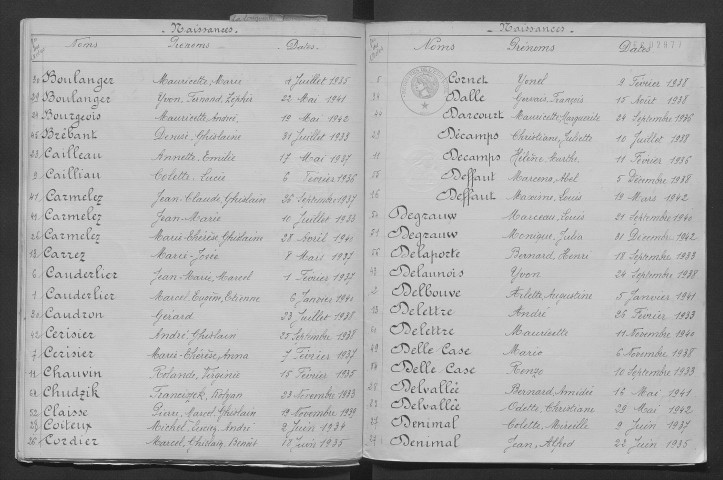 Naissances
Noms Prénoms Dates
30 Boulanger Mauricette, Marie 4 Juillet 1935
29 Boulanger Yvon, Fernand, Zéphir 22 Mai 1941
Bourgeois Mauricette André 19 Mai 1942
45 Brébant Denise, Ghislaine 31 Juillet 1933
23 Cailleau Annette, Emilie 17 Mai 1937
9 Cailliau Colette, Lucie 6 Février 1936
41 Carmelez Jean-Claude, Ghislain 26 Septembre 1937
Carmelez Jean-Marie 10 Juillet 1938
26 Carmelez Marie-Thérèse, Ghislaine 28 Avril 1941
Carrez Marie-José 8 Mai 1937
6 Cauderlier Jean-Marie, Marcel 1 Février 1937
1 Cauderlier Marcel, Eugène, Etienne 6 Janvier 1941
Caudron Gérard 23 Juillet 1938
42 Cerisier André, Ghislain 25 Septembre 1938
7 Cerisier Marie-Thérèse, Anna 7 Février 1937
11 Chauvin Rolande, Virginie 15 Février 1935
Chudzik Franciszek 23 Novembre 1933
52 Claisse Pierre, Marcel, Ghislain 19 Novembre 1939
Coiteux Michel, André 2 Juin 1934
26 Cordier Marcel, Ghislain, Benoît 18 Juin 1935
Naissances
Noms Prénoms Dates
5 Cornet Yonel 9 Février 1938
Dalle Gervais, François 15 Août 1938
44 Darcourt Mauricette, Marguerite 24 Septembre 1936
Décamps Christiane, Juliette 10 Juillet 1938
11 Decamps Hélène, Marthe 11 Février 1936
Deffaut Marceau, Abel 5 Décembre 1938
16 Deffaut Maxime, Louis 19 Mars 1942
Degrauw Marceau, Louis 21 Septembre 1940
Degrauw Monique, Julia 31 Décembre 1942
Delaporte Bernard, Henri 18 Septembre 1933
Delaunois Yvon 24 Septembre 1938
2 Delbouve Arlette, Augustine 5 Janvier 1941
Delettre André 26 Février 1933
Delettre Mauricette 11 Novembre 1940
49 Delle Case Mario 6 Novembre 1938
Delle Case Renzo 10 Septembre 1933
Delvallée Bernard, Amédée 16 Mai 1941
Delvallée Odette, Christiane 29 Mai 1942
27 Denimal Colette, Mireille 9 Juin 1937
Denimal Jean, Alfred 22 Juin 1935